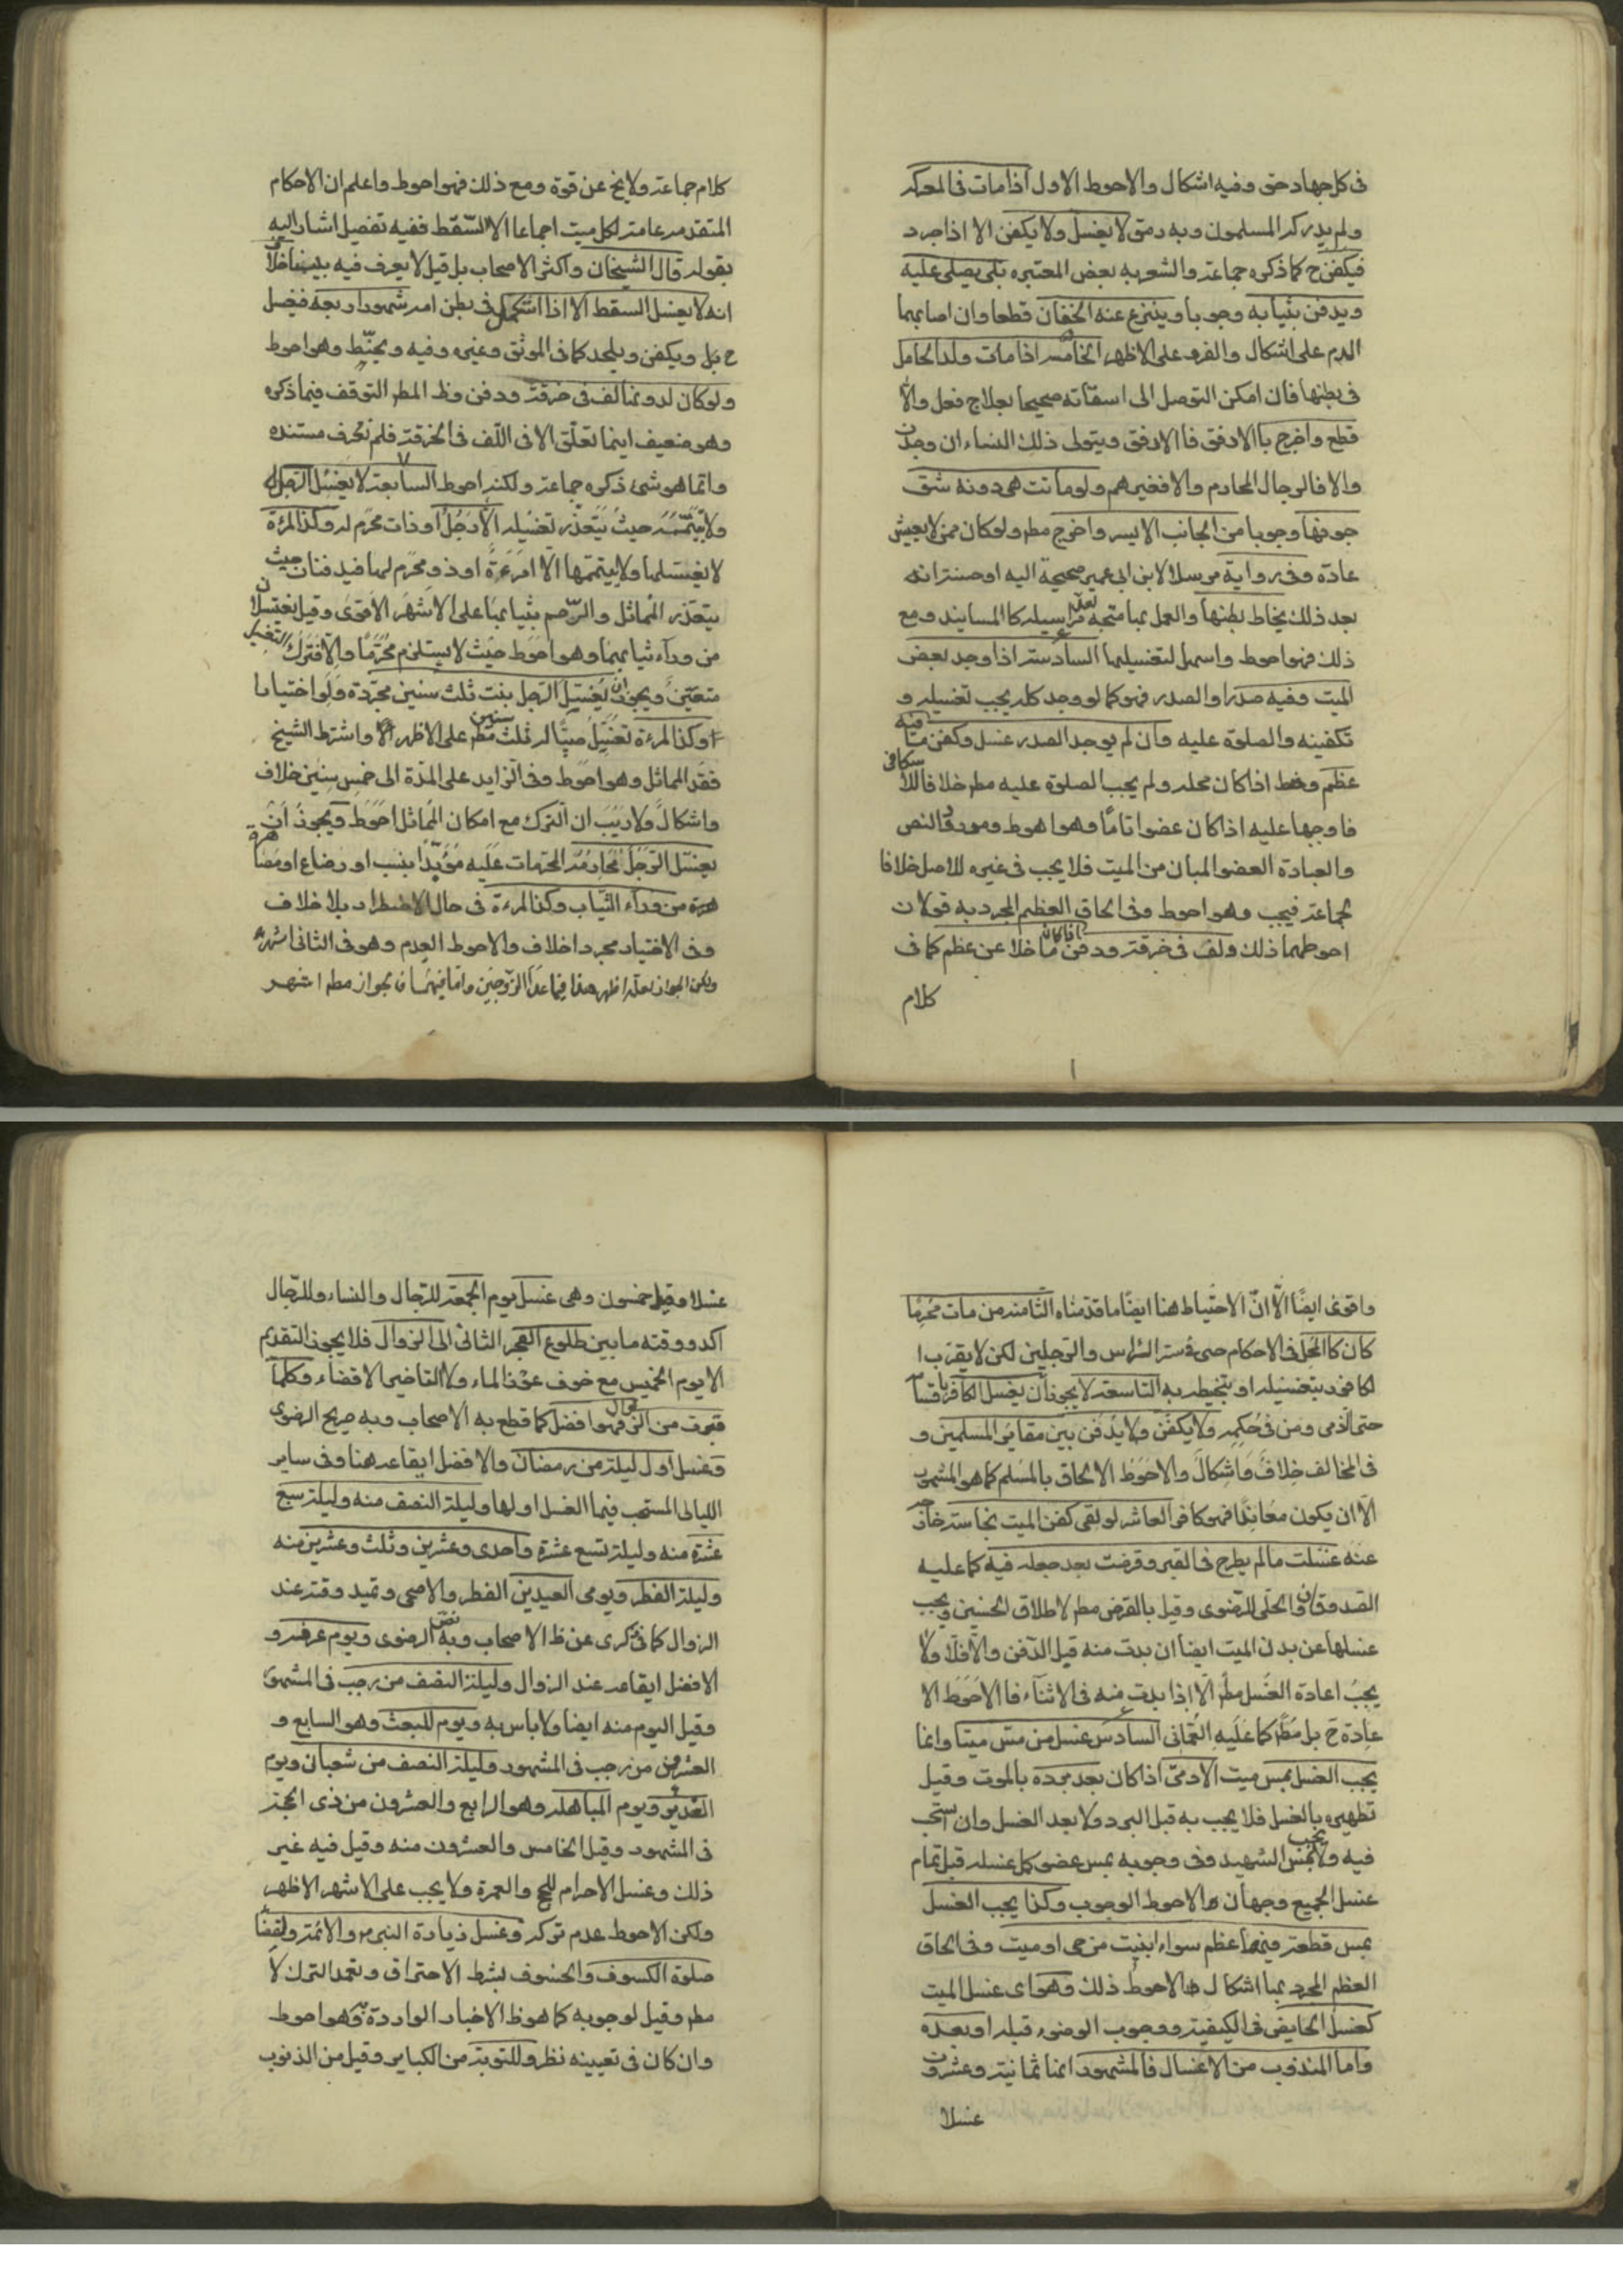 فى كل جهاد حق وفيه اشكال والاحوط الاول اذا مات فى المعركه
ولم يدركه المسلمون وبه رمق لا يغسل ولا يكفن الا اذا جرد
فيكفن ح كما ذكره جماعة والشعر به بعض المعتبره بلى يصلى عليه
ويدفن بثيابه وجوبا وينزع عنه الخفان قطعا وان اصابهما
الدم على اشكال والفرو على الاظهر الخامسه اذا مات ولد الحامل
فى بطنها فان امكن التوصل الى اسقاته صحيحا بعلاج فعل والا
قطع واخرج بالارفق فالارفق ويتولى ذلك النساء ان وجدن
والا فالرجال المحارم والا فغيرهم ولو ماتت هى دونه شق
جوفها وجوبا من الجانب الايسر واخرج مطم ولو كان ممن لا يعيش
عادة وفى رواية مرسلا لابن ابى عمير صحيحة اليه او حسنة انه
بعد ذلك يخاط بطنها والعمل بها متجه لعد مراسيله كالمسانيد ومع
ذلك فهو احوط واسهل لتغسيلها السادسة اذا وجد بعض
الميت وفيه صدر او الصدر فهو كما لو وجد كله يجب تغسيله و
تكفينه والصلوة عليه وان لم يوجد الصدر غسل وكفن ما فيه
عظم وحنط اذا كان محله ولم يجب الصلوة عليه مطم خلافا للاسكافى
فاوجبها عليه اذا كان عضوا تاما وهو احوط ومورد النص
والعبادة العضو المبان من الميت فلا يجب فى غيره للاصل خلافا
لجماعة فيجب وهو احوط وفى الحاق العظم المجرد به قولان
احوطهما ذلك ولف فى خرقة ودفن ما خلا عن عظم كما فى
كلام
كلام جماعة ولا يخ عن قوة ومع ذلك فهو احوط واعلم ان الاحكام
المتقدمه عامة لكل ميت اجماعا الا السقط ففيه تفصيل اشار اليه
بقوله قال الشيخان واكثر الاصحاب بل قيل لا يعرف فيه بيننا خلافا
انه لا يغسل السقط الا اذا استكمل فى بطن امه شهورا اربعه فيغسل
ح بل ويكفن ويلحد كما فى الموثق وغيره وفيه ويحنط وهو احوط
ولو كان لدونها لف فى خرقة ودفن وظ المطر التوقف فيما ذكره
وهو ضعيف اينما تعلق الا فى اللف فى الخرقة فلم نعرف مستنده
وانما هو شئ ذكره جماعة ولكنه احوط السابعة لا يغسل الرجل
ولا يتممه حيث يتعذر تغسيله الا رجل او ذات محرم له وكذا المرءة
لا يغسلها ولا يتممها الا امرءة او ذو محرم لها فيدفنان حيث
يتعذر المماثل والرحم بثيابهما على الاشهر الاقوى وقيل يغتسلان
من وراء ثيابهما وهو احوط حيث لا يستلزم محرما والا فترك التغسيل
متعين ويجوز ان يغسل الرجل بنت ثلث سنين مجردة ولو اختيارا
وكذا المرءة تغسل صبيا له ثلث سنين مطم على الاظهر واشترط الشيخ
فقد المماثل وهو احوط وفى الزايد على المدة الى خمس سنين خلاف
واشكال ولا ريب ان الترك مع امكان المماثل احوط ويجوز ان
يغسل الرجل محارمه المحرمات عليه مؤبدا بنسب او رضاع او مصاهرة
من وراء الثياب وكذا المرءة فى حال الاضطرار بلا خلاف
وفى الاختيار مجرد اخلاف والاحوط العدم وهو فى الثانى اشهر
ولكن الجواز لعله اظهر هذا فيما عدا الزوجين واما فيهما فالجواز مطم اشهر
واقوى ايضا الا ان الاحتياط هنا ايضا ما قدمناه الثامنه من مات محرما
كان كالمحل فى الاحكام حتى فى ستر الراس والرجلين لكن لا يقرب ا
لكافور بتغسيله او بتحنيطه به التاسعه لا يجوز ان يغسل الكافر باقسامه
حتى الذمى ومن فى حكمه ولا يكفن ولا يدفن بين مقابر المسلمين و
فى المخالف خلاف واشكال والاحوط الالحاق بالمسلم كما هو المشهور
الا ان يكون معاندا فهو كافر العاشر لو لقى كفن الميت نجاسة خارجه
عنه غسلت ما لم يطرح فى القبر وقرضت بعد جعله فيه كما عليه
الصدوقان والحلى للرضوى وقيل بالقرض مطم لاطلاق الحسنين ويجب
غسلها عن بدن الميت ايضا ان بدت منه قبل الدفن والا فلا ولا
يجب اعادة الغسل مطم الا اذا بدت منه فى الاثناء فالاحوط الا
عادة ح بل مطم كما عليه العمانى السادس غسل من مس ميتا وانما
يجب الغسل بمس ميت الادمى اذا كان بعد برده بالموت وقبل
تطهيره بالغسل فلا يجب به قبل البرد ولا بعد الغسل وان استحب
فيه ولا يجب بمس الشهيد وفى وجوبه بمس عضو كمل غسله قبل تمام
غسل الجميع وجهان والاحوط الوجوب وكذا يجب الغسل
بمس قطعة فيها عظم سواء ابينت من حى او ميت وفى الحاق
العظم المجرد بها اشكال والاحوط ذلك وهو اى غسل الميت
كغسل الحايض فى الكيفية ووجوب الوضوء قبله او بعده
واما المندوب من الاغسال فالمشهور انها ثمانية وعشرون
غسلا
غسلا وقيل خمسون وهى غسل يوم الجمعة للرجال والنساء وللرجال
اكد ووقته ما بين طلوع الفجر الثانى الى الزوال فلا يجوز التقديم
الا يوم الخميس مع خوف عوز الماء ولا التاخير الا قضاء وكلما
قرب من الزوال فهو افضل كما قطع به الاصحاب وبه صريح الرضوى
وغسل اول ليلة من رمضان والافضل ايقاعه هنا وفى ساير
الليالى المستحب فيها الغسل اولها وليلة النصف منه وليلة سبع
عشرة منه وليلة تسع عشرة واحدى وعشرين وثلث وعشرين منه
وليلة الفطر ويومى العيدين الفطر والاضحى ويمتد وقته عند
الزوال كما فى كرى عن ظ الاصحاب وبه نص الرضوى ويوم عرفه و
الافضل ايقاعه عند الزوال وليلة النصف من رجب فى المشهور
وقيل اليوم منه ايضا ولا باس به ويوم المبعث وهو السابع و
العشرون من رجب فى المشهور وليلة النصف من شعبان ويوم
الغدير ويوم المباهله وهو الرابع والعشرون من ذى الحجة
فى المشهور وقيل الخامس والعشرون منه وقيل فيه غير
ذلك وغسل الاحرام للحج والعمرة ولا يجب على الاشهر الاظهر
ولكن الاحوط عدم تركه وغسل زيارة النبى والائمة ولقضاء
صلوة الكسوف والخسوف بشرط الاحتراق وتعمد الترك لا
مطم وقيل لوجوبه كما هو ظ الاخبار الواردة وهو احوط
وان كان فى تعيينه نظر وللتوبة من الكباير وقيل من الذنوب